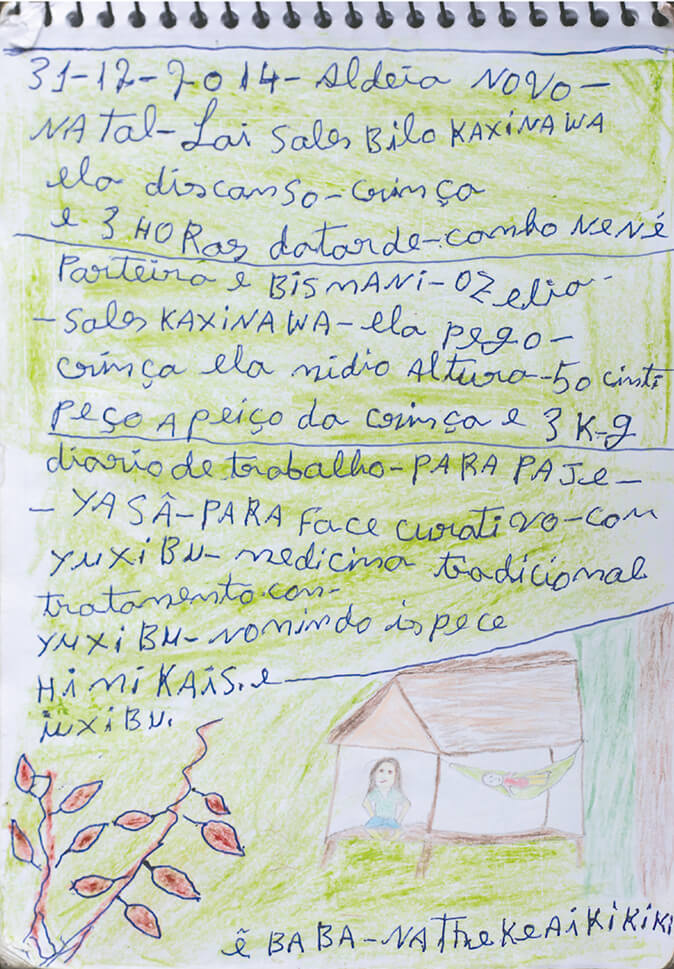 31-12-2014- Aldeia NOVO-
NATAl- Lai Sales Bilo KAXiNAWA
ela discanso-crinsa
e 3 HORas datarde-canho NeNé
Parteira e BiSMANi-OZelio-
-Sales KAXiNAWA-ela pego-
crinça ela midio Altura-50 cinti
Peço A peiço da crinsça e 3 K-g
diario de trabalho-PARA PAJe-
- YASÂ-PARA Face curativo-com
YUXiBU- medicina tradicional
tratamento.con-
YUXiBU- nomindo ispece
HiMi KAiS. e
iUXiBU.
ê BABA-NATHeKeAiKiKiKi